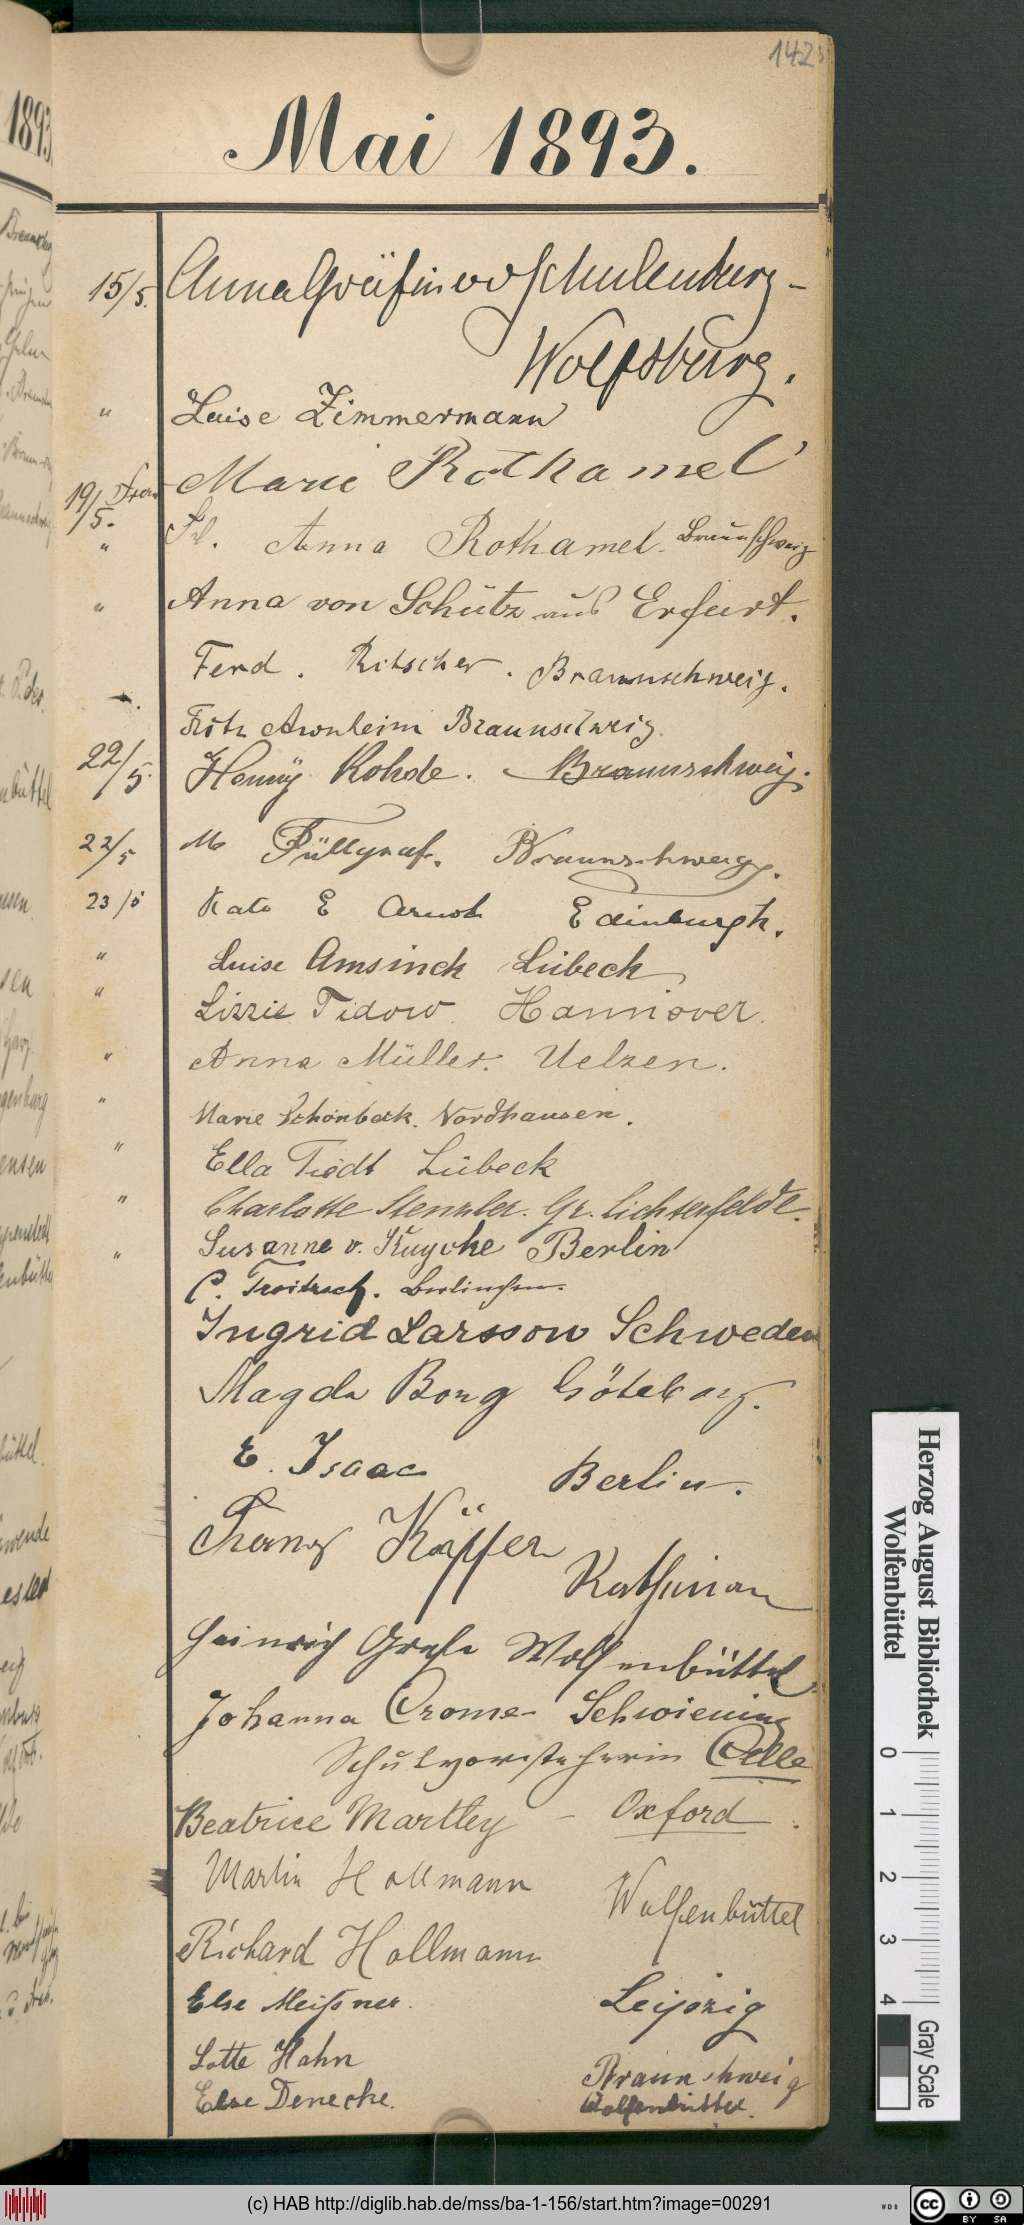 142
Mai 1893.
15/5. Anna Gräfin v d Schulenburg-
Wolfsburg.
" Luise Zimmermann
19/5. Frau Marie Rothamel
" Frl. Anna Rothamel. Braunschweig
" Anna von Schütz aus Erfurt.
Ferd. Ritscher. Braunschweig.
Fritz Aronheim Braunschweig.
22/5. Henny Rohde. Braunschweig.
22/5 M Füllgraf. Braunschweig.
23/5 Kate E Edinburgh.
" Luise Amsinck Lübeck
" Lizzie Tidow. Hannover.
" Anna Müller. Uelzen.
" Marie Schönbeck. Nordhausen.
" Ella Tiedt Lübeck
" Charlotte Stenzler. Gr. Lichterfelde.
" Susanne v. Kuycke Berlin
C. Troitzsch.
Ingrid Larsson Schweden
Magda Borg Göteborg.
E. Isaac Berlin.
Franz Käpper
Heinrich Grefe Wolfenbüttel
Johanna Crome-Schwiening
Schulvorsteherin Celle
Beatrice Martley - Oxford.
Martin Hollmann Wolfenbüttel
Richard Hollmann
Else Meißner. Leipzig
Lotte Hahn Braunschweig
Else Denecke. Wolfenbüttel.
Herzog August Bibliothek
Wolfenbüttel
0 1 2 3 4 Gray Scale
(c) HAB http://diglib.hab.de/mss/ba-1-156/start.htm?image=00291
WDB
cc BY SA